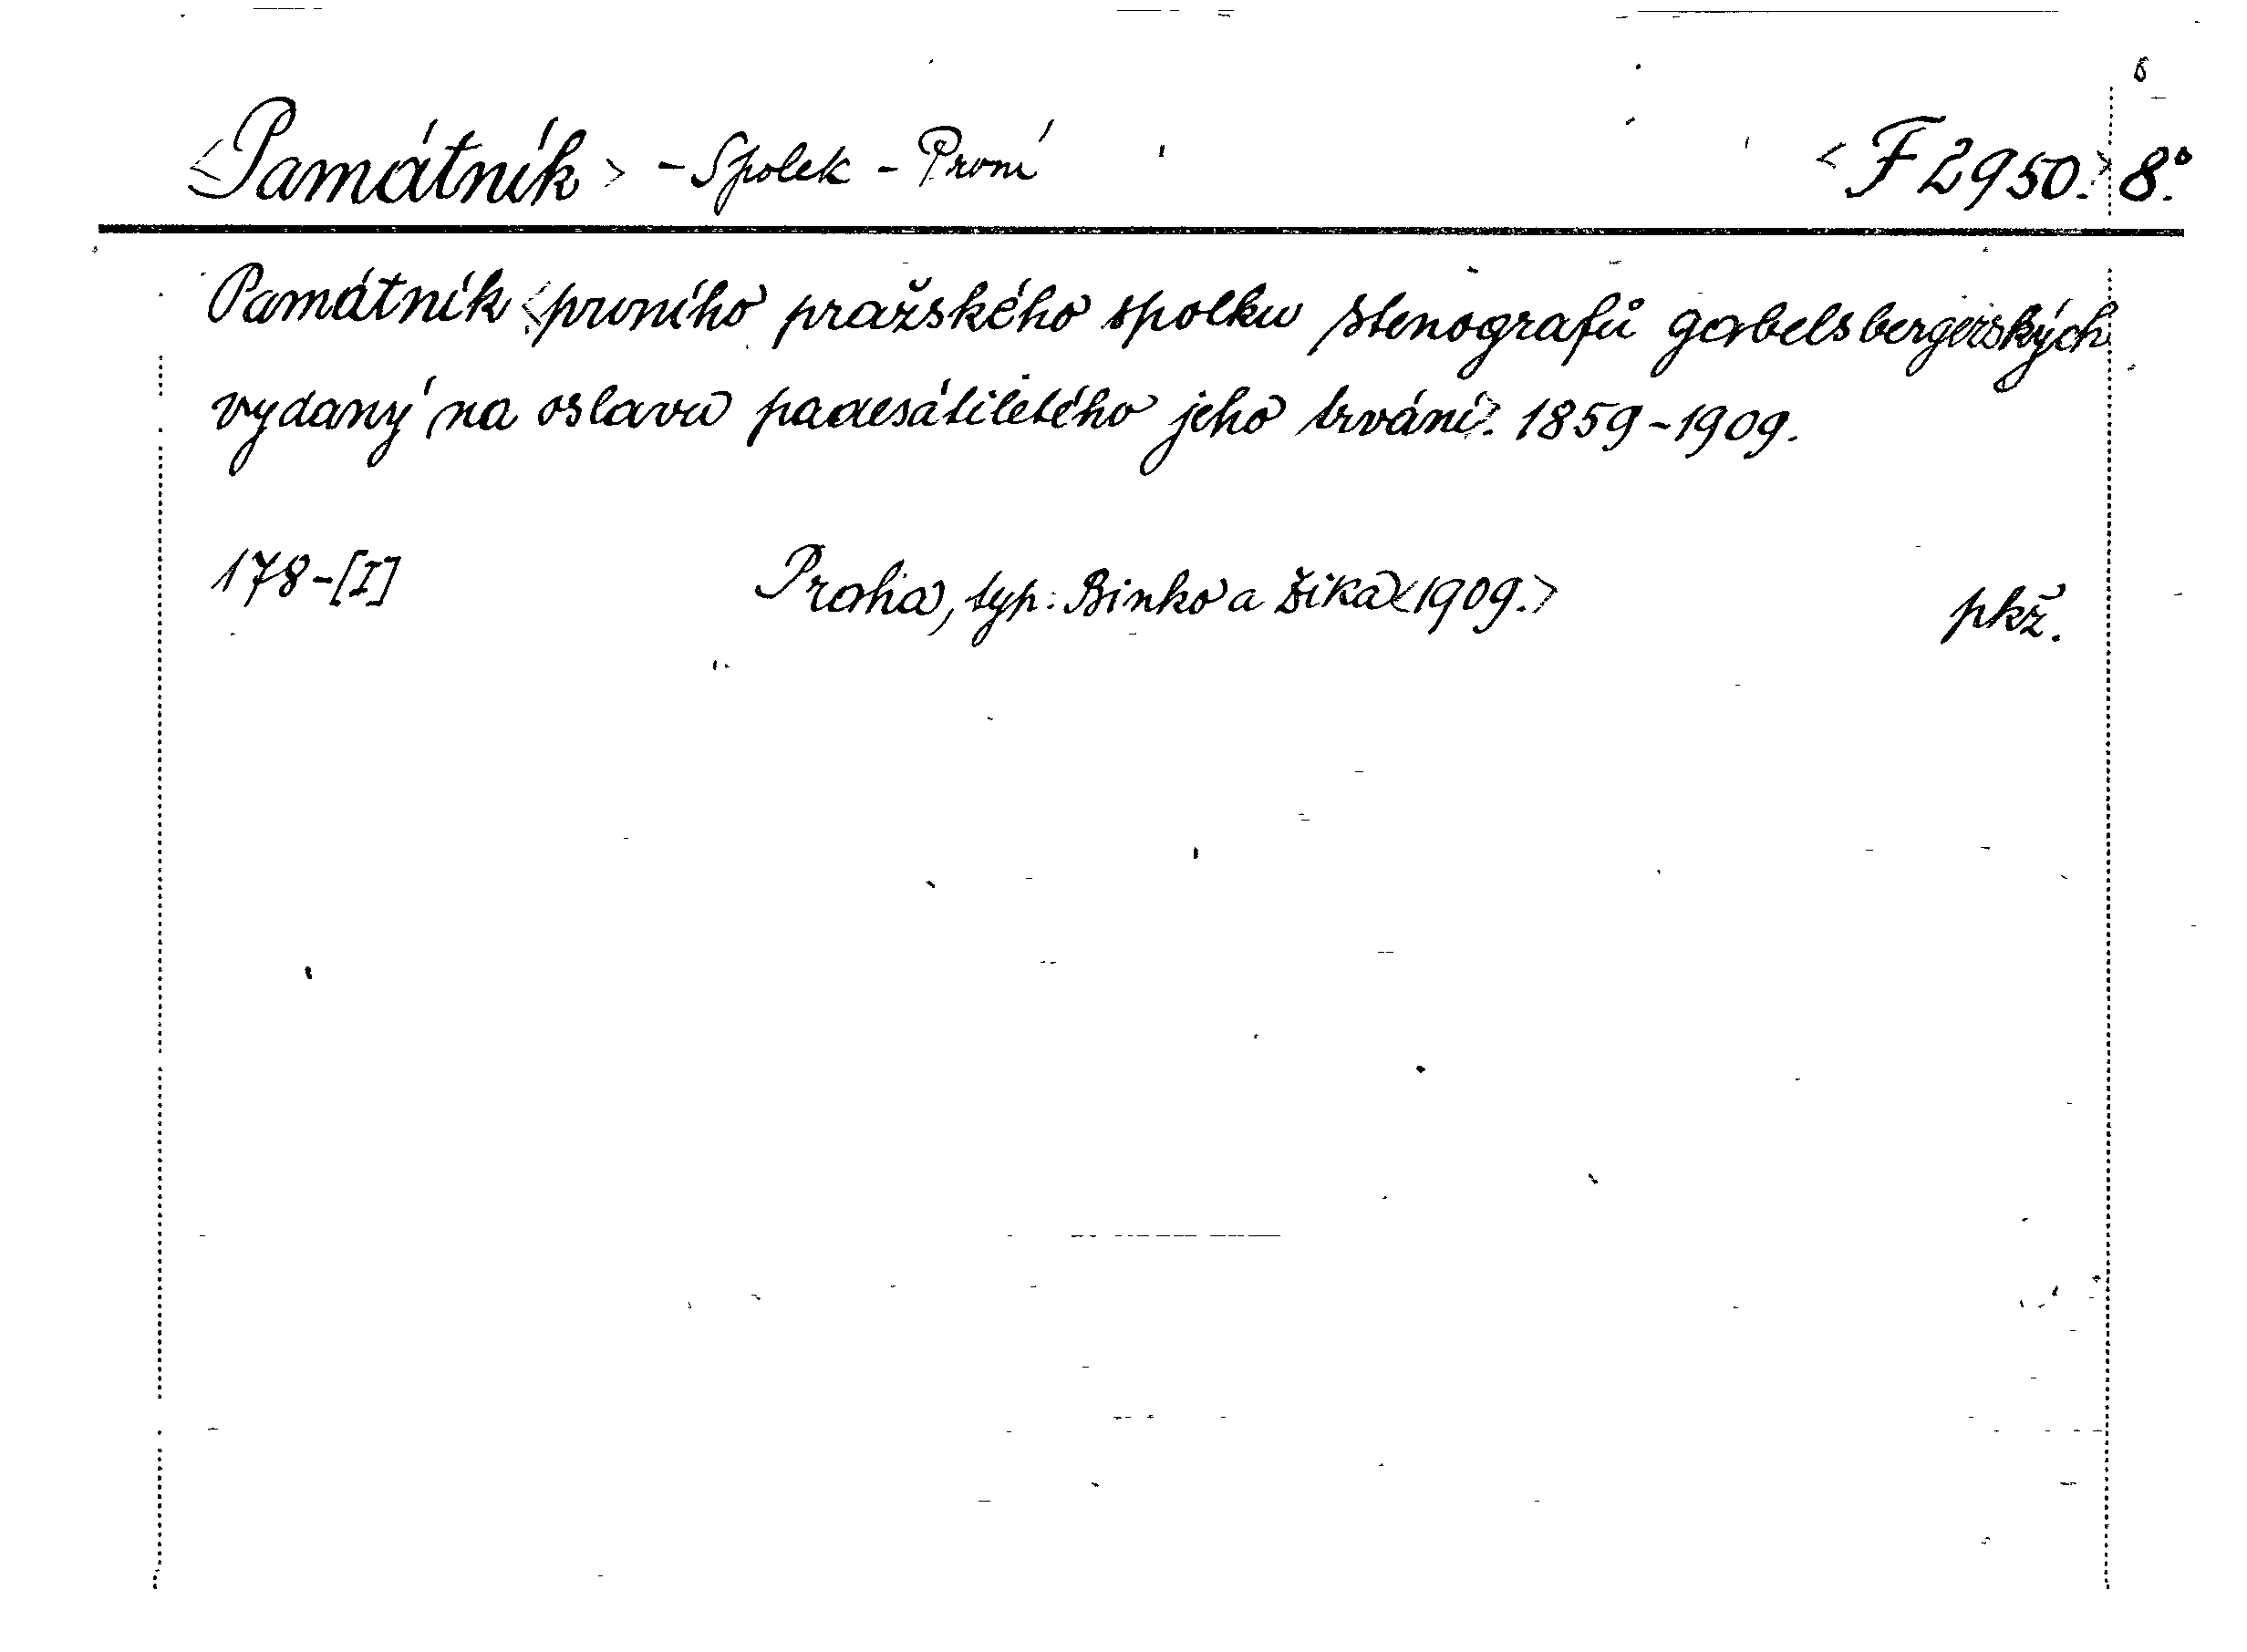 <Památník> - Spolek - První <F 2950.> 8°.
Památník <prvního pražského spolku stenografů gabelsbergerských
vydaný na oslavu padesátiletého jeho trvání>. 1859-1909.
178-[I] Praha, typ: Binko a Žika <1909.> pkž.